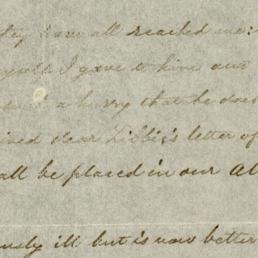 they have all reached me:
myself I gave to him and
such a hurry that he does
ived dear Libbie's letter of
all be placed in our Al
ously ill but is now better